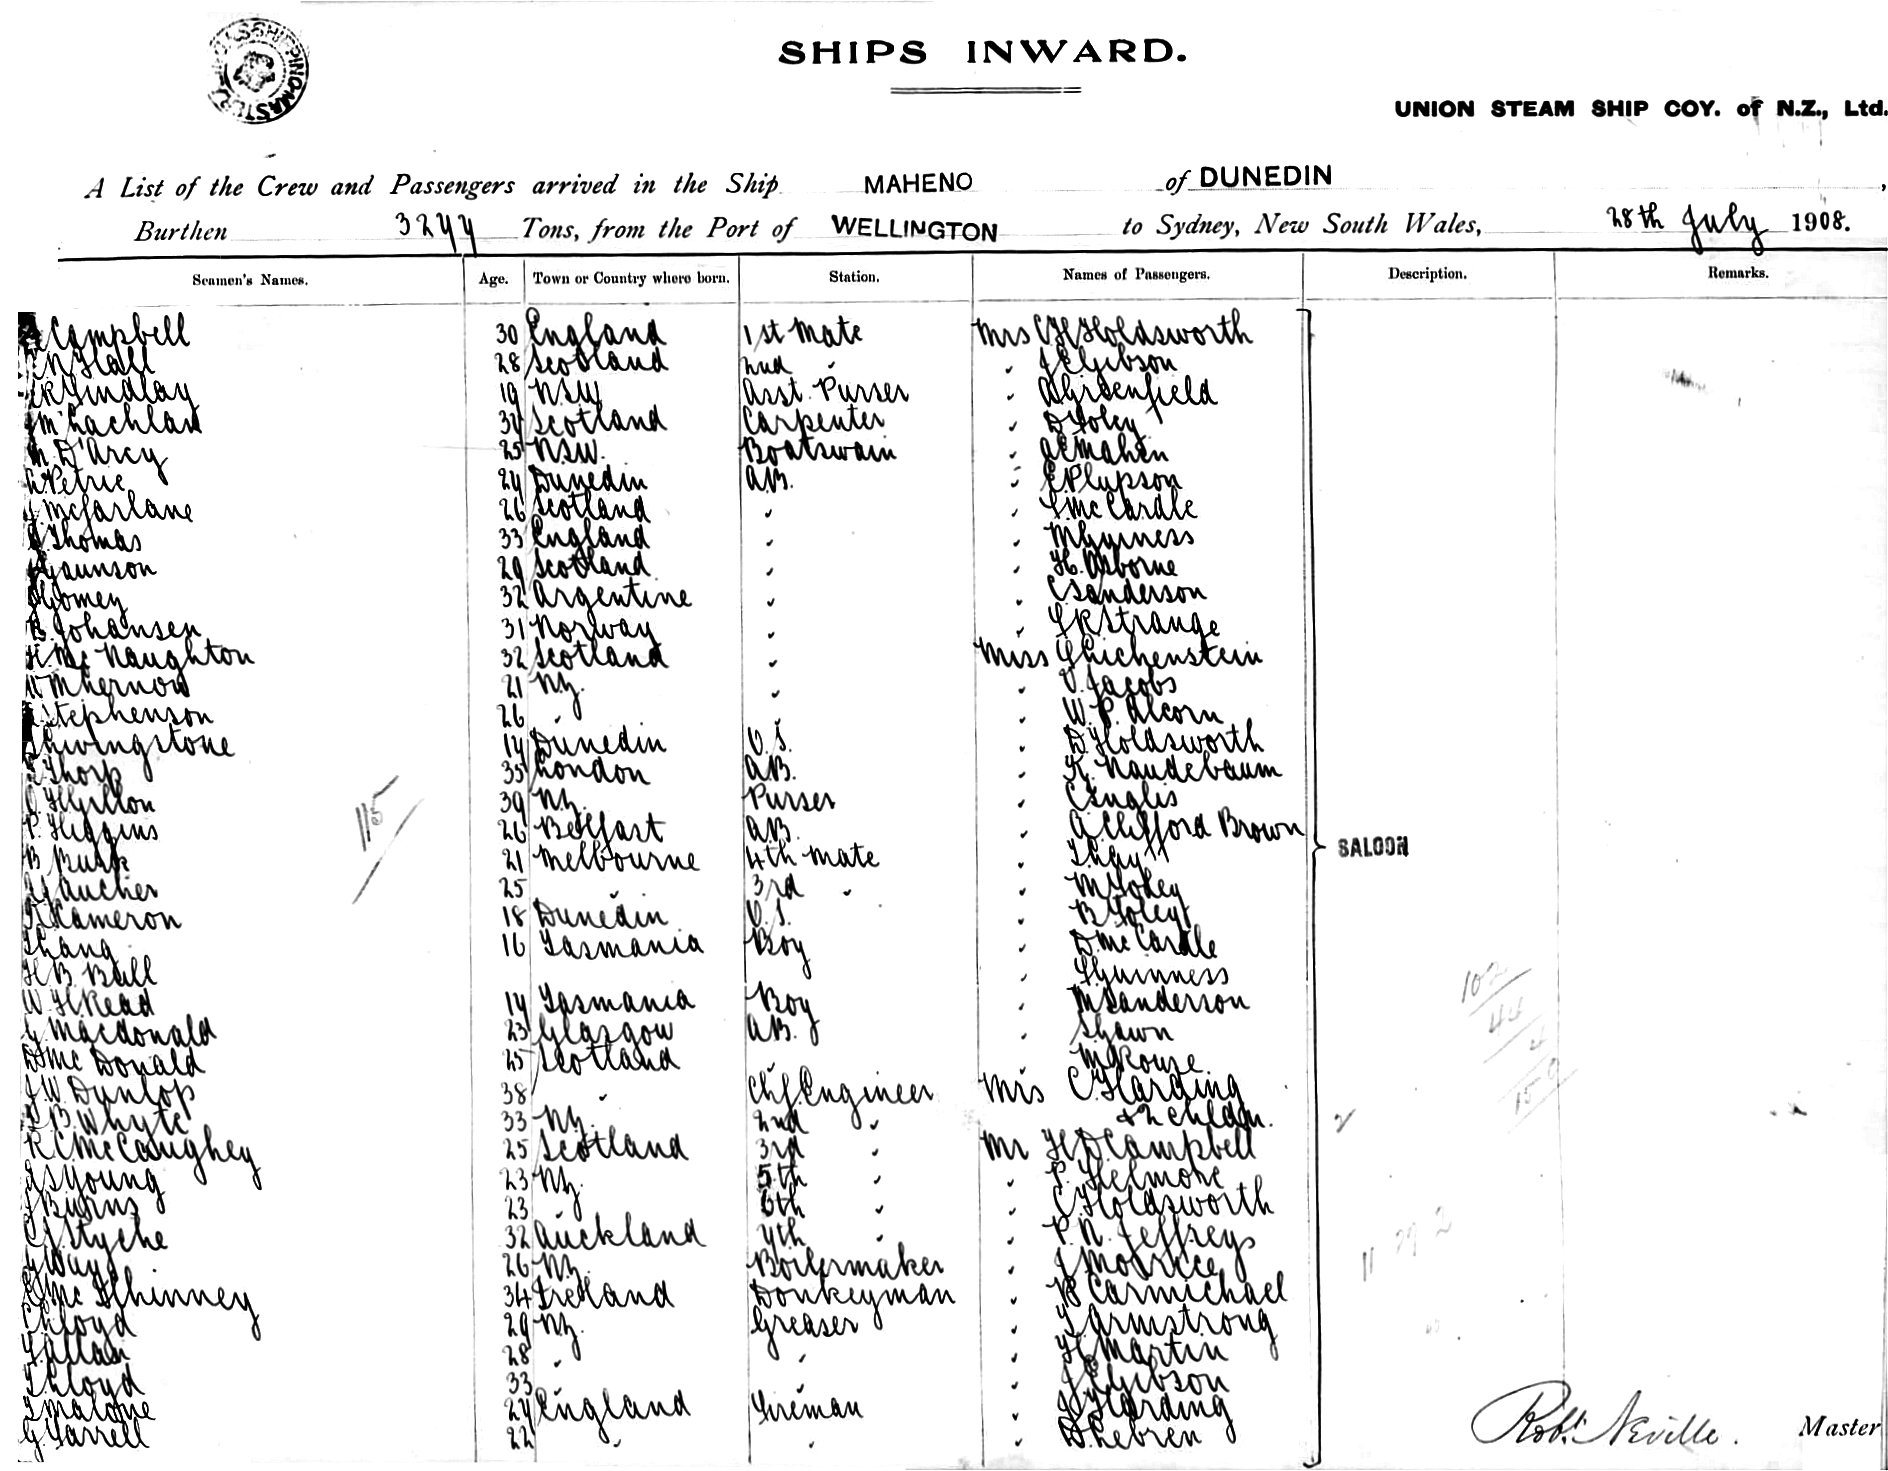 SHIPS INWARD.
UNION STEAM SHIP COY. of N.Z., Ltd.
A List of the Crew and Passengers arrived in the Ship MAHENO of DUNEDIN,
Burthen 3244 Tons, from the Port of WELLINGTON to Sydney, New South Wales, 28th July 1908.
Seamen's Names. Age. Town or Country where born. Station. Names of Passengers. Description. Remarks.
Campbell 30 England 1st Mate Mrs C H Holdsworth
N Hall 28 Scotland 2nd " " J E Gibson
Findlay 19 N.S.W Asst. Purser " A Greenfield
McLachlan 34 Scotland Carpenter " D Foley
M. D'Arcy 25 N.S.W. Boatswain " A E Mahen
Petrie 24 Dunedin A.B. " E Plupson
McFarlane 26 Scotland " " McCardle
Thomas 33 England " " M Guiness
Gaunson 29 Scotland " " H. Osborne
Gomey 32 Argentine " " C Sanderson
Johansen 31 Norway " " R Strange
McNaughton 32 Scotland " Miss Lichenstein
Mhernow 21 N.Z. " " V. Jacobs
Stephenson 26 " " " W. P. Alcorn
Livingstone 14 Dunedin O.S. " D Holdsworth
Thorp 35 London A.B. " K. Naudebaum
Gillon 39 N.Z. Purser " C Inglis
P. Higgins 26 Belfast A.B. " A Clifford Brown
B Burk 21 Melbourne 4th Mate "
Faucher 25 " 3rd " " M Foley
Cameron 18 Dunedin O.S. " B Foley
Lang 16 Tasmania Boy " D McCardle
H B Bull " Guinness
W H Read 14 Tasmania Boy " M Sanderson
G Macdonald 23 Glasgow A.B. "
D McDonald 25 Scotland " " M Rouse
J. W. Dunlop 38 " Chf. Engineer Mrs C. Harding
B. Whyte 33 N.Z. 2nd " & 2 childn. 2
R C McCaughey 25 Scotland 3rd " Mr H D Campbell
Young 23 N.Z. 5th " " P. Helmore
Burns 23 " 6th " " C Holdsworth
Styche 32 Auckland 4th " " P. N. Jeffreys
Way 26 N.Z. Boilermaker " J Moorice
McIlhinney 34 Ireland Donkeyman " R Carmichael
Lloyd 29 N.Z. Greaser " Armstrong
Allan 28 " " " H Martin
Lloyd 33 " " " J E Gibson
Malone 24 England Fireman " J Harding
G. Farrell 22 " " " D. Lebren
115
SALOON
102
44
4
Robt. Neville. Master